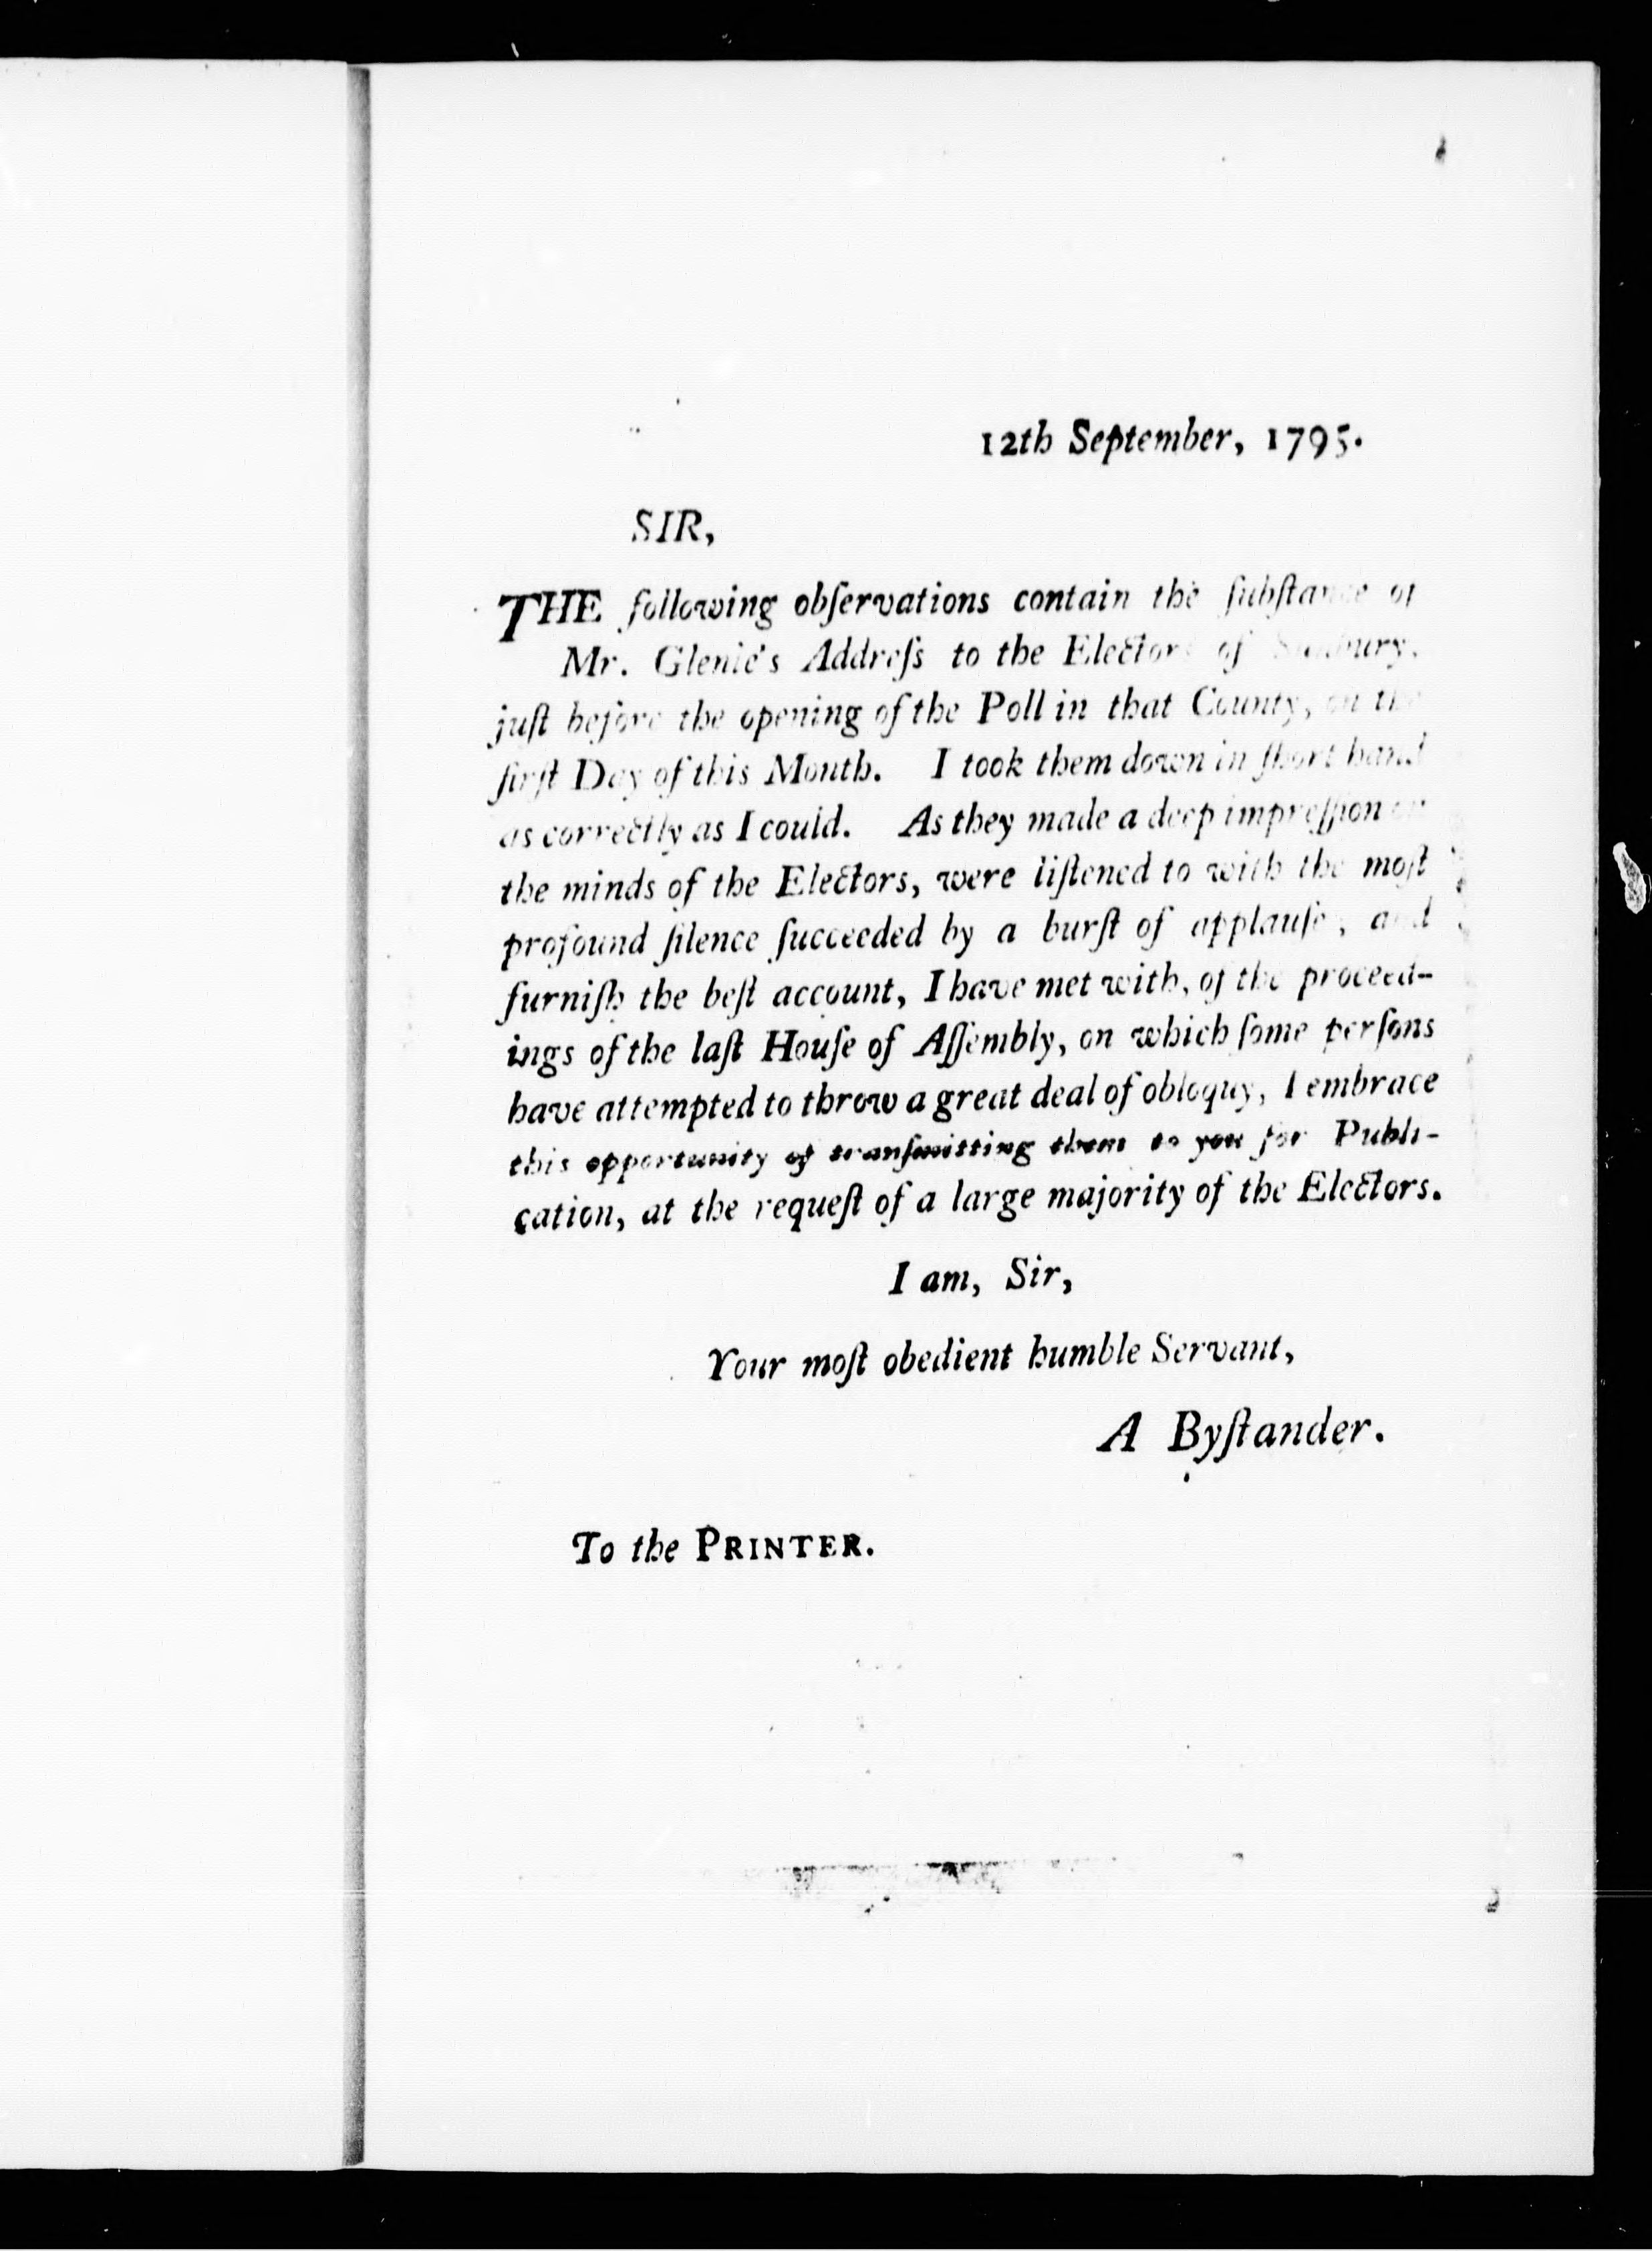 12th September, 1795.
SIR,
THE following obſervations contain the ſubſtance of
Mr. Glenie's Addreſs to the Electors of Sunbury,
juſt before the opening of the Poll in that County, on the
firſt Day of this Month. I took them down in ſhort hand
as correctly as I could. As they made a deep impreſſion on
the minds of the Electors, were liſtened to with the moſt
profound ſilence ſucceeded by a burſt of applauſe, and
furniſh the beſt account, I have met with, of the proceed-
ings of the laſt Houſe of Aſſembly, on which ſome perſons
have attempted to throw a great deal of obloquy, I embrace
this opportunity of tranſmitting them to you for Publi-
cation, at the requeſt of a large majority of the Electors.
I am, Sir,
Your moſt obedient humble Servant,
A Byſtander.
To the PRINTER.